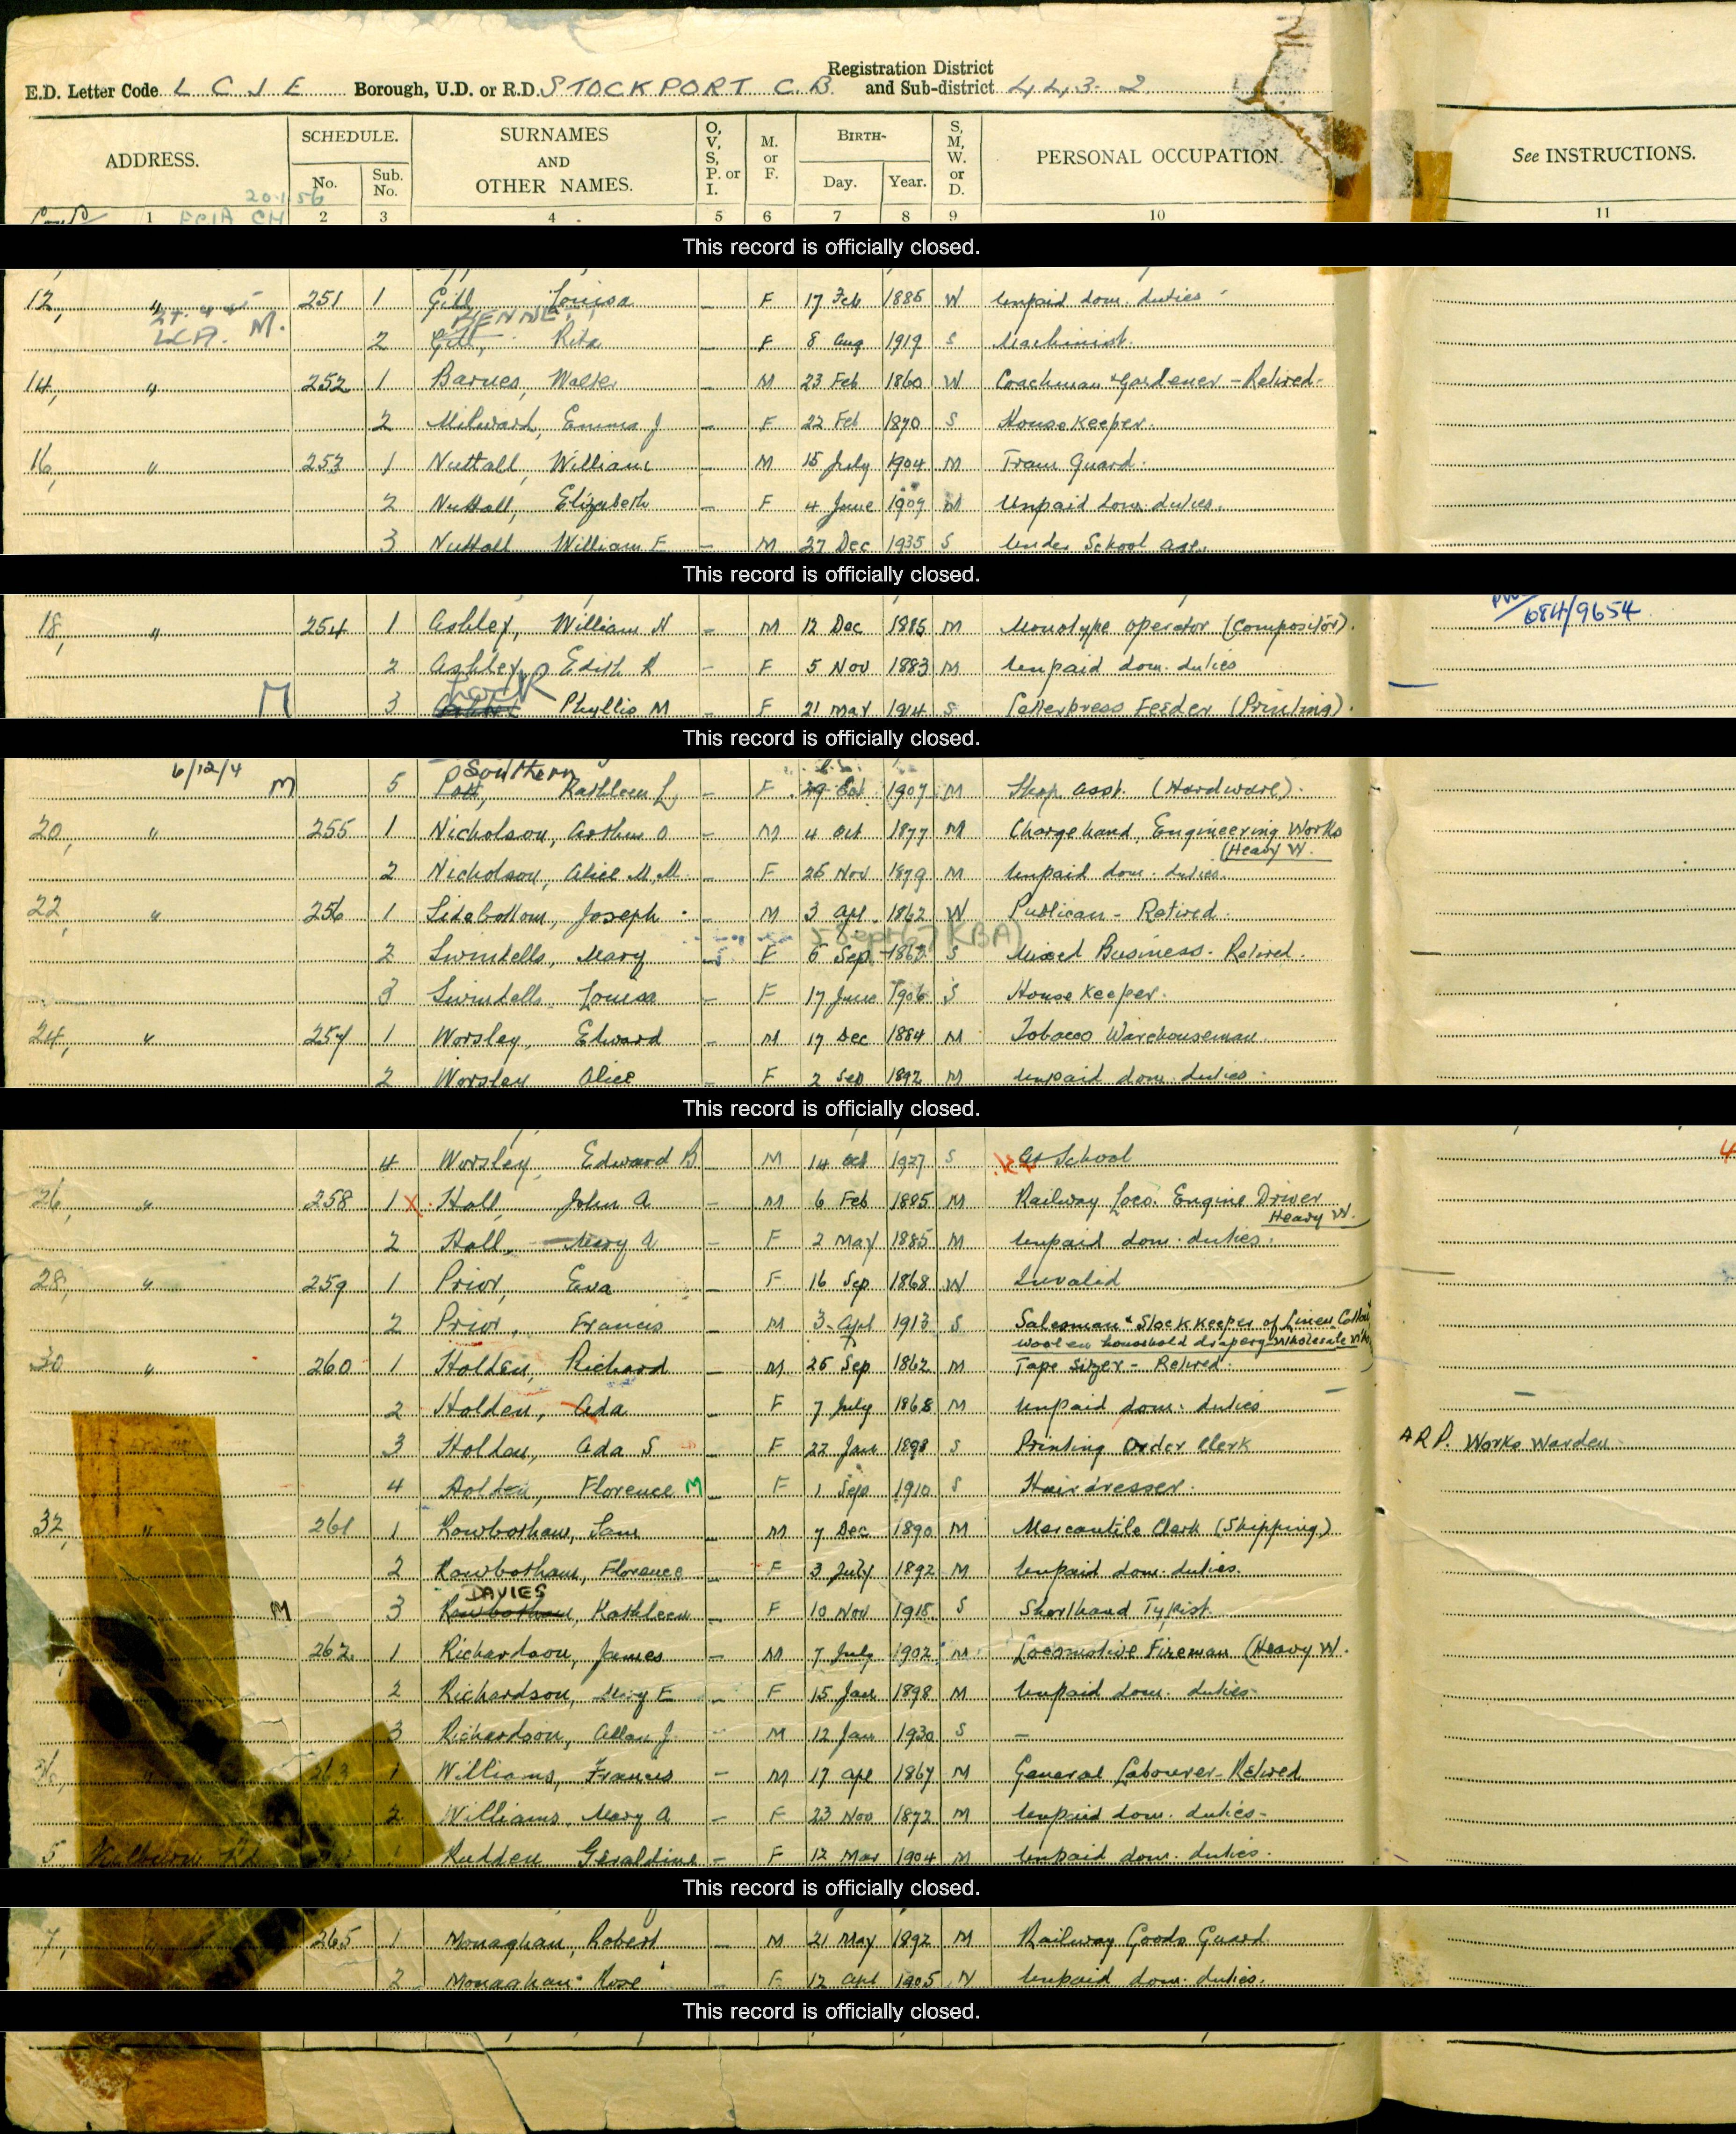 Registration District
E.D. Letter Code L C J E Borough, U.D. or R.D. STOCKPORT C.B. and Sub-district 443-2
ADDRESS. SCHEDULE. No. Sub. No. SURNAMES AND OTHER NAMES. O, V, S, P. or I. M. or F. BIRTH- Day. Year. S, M, W. or D. PERSONAL OCCUPATION. See INSTRUCTIONS.
20.1.56
1 CH 2 3 4 5 6 7 8 9 10 11
This record is officially closed.
12, " 251 1 Gill Louisa – F 17 Feb 1886 W Unpaid dom. duties
M.
2 Gill, Rita – F 8 Aug 1919 S Machinist.
14, " 252 1 Barnes, Walter – M 23 Feb 1860 W Coachman & Gardener - Retired-
2 Milward, Emma J – F 22 Feb 1870 S House Keeper.
16, " 253 1 Nuttall, William – M 15 July 1904 M Tram Guard.
2 Nuttall, Elizabeth – F 4 June 1907 M Unpaid dom. duties.
3 Nuttall William F – M 27 Dec 1935 S Under School age.
This record is officially closed.
684/9654
18, " 254 1 Ashley, William H – M 12 Dec 1885 M Monotype operator (Compositor).
2 Ashley, Edith R – F 5 Nov 1883 M Unpaid dom. duties
M 3 Phyllis M – F 21 Mar 1914 S Letterpress Feeder (Printing).
This record is officially closed.
6/12/4 Southern
M 5 Pott, Kathleen L – F 29 Oct 1907 M Shop asst. (Hardware).
20, " 255 1 Nicholson, Arthur O – M 4 Oct 1877 M Chargehand, Engineering Works
(Heavy W.
2 Nicholson, Alice M.M. – F 25 Nov 1879 M Unpaid dom. duties.
22, " 256 1 Sidebottom, Joseph – M 3 Apl 1862 W Publican - Retired.
5 Sept (7 KBA)
2 Swindells, Mary F 6 Sep 1863 S Mixed Business. Retired.
3 Swindells Louisa – F 17 June 1906 S House Keeper.
24, " 257 1 Worsley, Edward – M 17 Dec 1884 M Tobacco Warehouseman.
2 Worsley Alice – F 2 Sep 1892 M Unpaid dom. duties.
This record is officially closed.
4 Worsley, Edward B – M 14 Oct 1927 S At School
26, " 258 1 X Hall, John A – M 6 Feb 1885 M Railway Loco. Engine Driver
Heavy W.
2 Hall, Mary A – F 2 May 1885 M Unpaid dom. duties.
28, " 259 1 Prior, Eva F 16 Sep 1868 W Invalid
2 Prior, Francis M 3 Apl 1913 S Salesman & Stock Keeper of Linen Cotton
woolen household drapery-wholesale
30 " 260 1 Holden, Richard – M 25 Sep 1862 M Tape Sizer - Retired.
2 Holden, Ada – F 7 July 1868 M Unpaid dom. duties
3 Holden, Ada S – F 22 Jan 1898 S Printing Order Clerk A R P. Works Warden
4 Holden, Florence M – F 1 Sep 1910 S Hairdresser.
32, " 261 1 Rowbotham, Sam – M 7 Dec 1890 M Mercantile Clerk (Shipping)
2 Rowbotham, Florence – F 3 July 1892 M Unpaid dom. duties.
DAVIES
M 3 Rowbotham, Kathleen – F 10 Nov 1918 S Shorthand Typist.
262 1 Richardson, James – M 7 July 1902 M Locomotive Fireman (Heavy W.
2 Richardson, Mary E – F 15 Jan 1898 M Unpaid dom. duties-
3 Richardson, Allan J. – M 12 Jan 1930 S –
36, " 263 1 Williams, Frances – M 17 Apl 1867 M General Labourer - Retired
2 Williams, Mary A – F 23 Nov 1872 M Unpaid dom. duties-
5 Kilburn Rd 1 Rudden Geraldine – F 12 Mar 1904 M Unpaid dom. duties.
This record is officially closed.
7, " 265 1 Monaghan, Robert – M 21 May 1892 M Railway Goods Guard
2 Monaghan Rose – F 12 Apl 1905 M Unpaid dom. duties.
This record is officially closed.